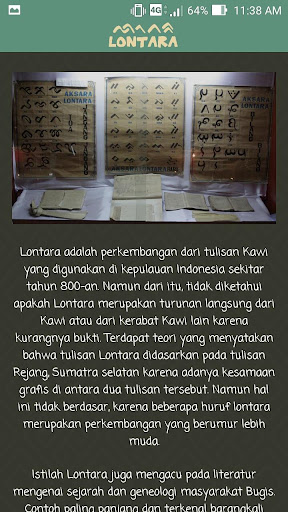 4G 64% 11:38 AM
LONTARA
AKSARA
LONTARA
AKSARA
LONTARA
Lontara adalah perkembangan dari tulisan Kawi
yang digunakan di kepulauan Indonesia sekitar
tahun 800-an. Namun dari itu, tidak diketahui
apakah Lontara merupakan turunan langsung dari
Kawi atau dari kerabat Kawi lain karena
kurangnya bukti. Terdapat teori yang menyatakan
bahwa tulisan Lontara didasarkan pada tulisan
Rejang, Sumatra selatan karena adanya kesamaan
grafis di antara dua tulisan tersebut. Namun hal
ini tidak berdasar, karena beberapa huruf lontara
merupakan perkembangan yang berumur lebih
muda.
Istilah Lontara juga mengacu pada literatur
mengenai sejarah dan geneologi masyarakat Bugis.
Contoh paling panjang dan terkenal barangkali